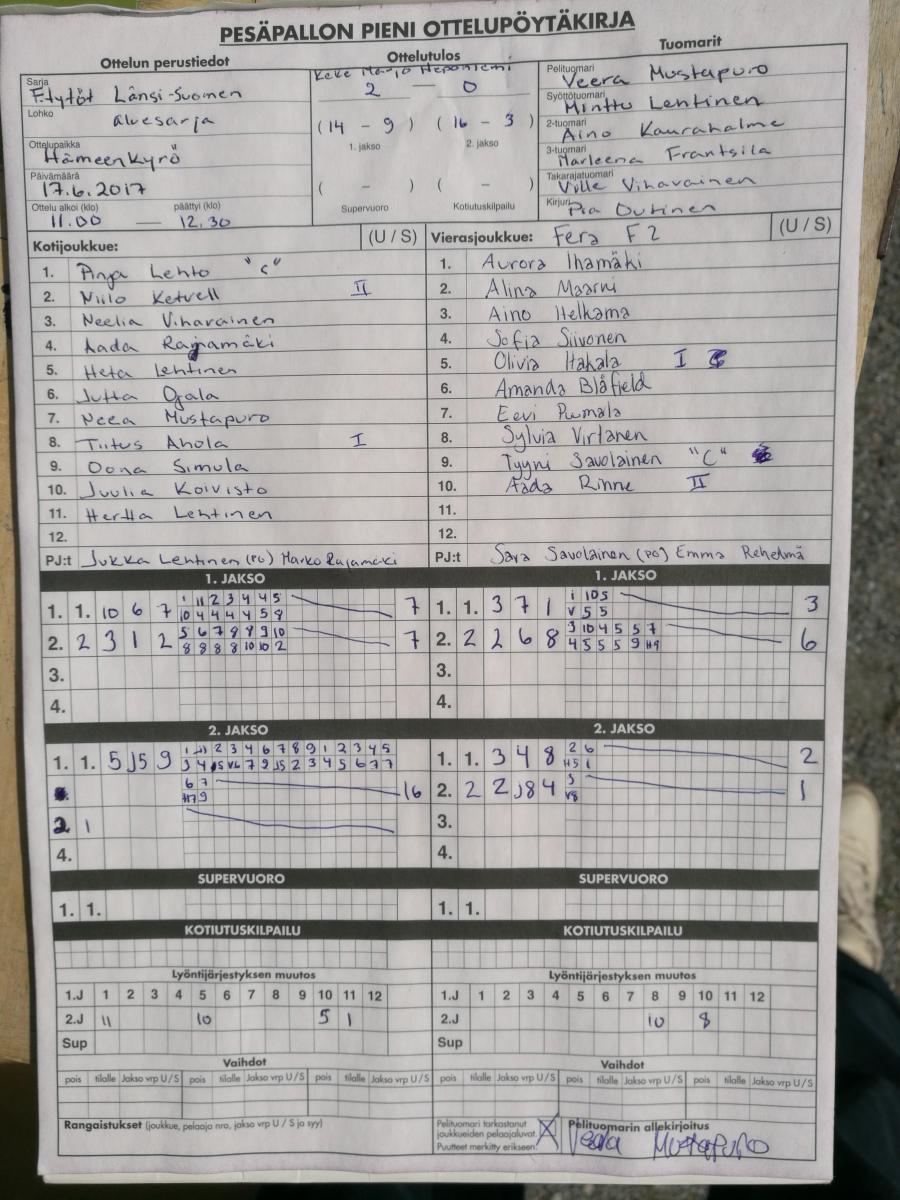 PESÄPALLON PIENI OTTELUPÖYTÄKIRJA
Ottelun perustiedot
Ottelutulos
Tuomarit
Sarja
F-tytöt Länsi-Suomen
Lohko
aluesarja
Ottelupaikka
Hämeenkyrö
Päivämäärä
17.6.2017
Ottelu alkoi (klo) päättyi (klo)
11.00 — 12.30
2 — 0
( 14 - 9 ) ( 16 - 3 )
1. jakso 2. jakso
( - ) ( - )
Supervuoro Kotiutuskilpailu
Pelituomari
Veera Mustapuro
Syöttötuomari
Minttu Lehtinen
2-tuomari
Aino Kaurahalme
3-tuomari
Marleena Frantsila
Takarajatuomari
Ville Vihavainen
Kirjuri
Pia Outinen
Kotijoukkue: (U / S)
1. Lehto "C"
2. Niilo Ketvell II
3. Neelia Vihavainen
4. Aada Rajamäki
5. Heta Lehtinen
6. Jutta Ojala
7. Neea Mustapuro
8. Tiitus Ahola I
9. Oona Simula
10. Juulia Koivisto
11. Hertta Lehtinen
12.
PJ:t Jukka Lehtinen (PO) Marko Rajamäki
Vierasjoukkue: Fera F2 (U / S)
1. Aurora Ihamäki
2. Alina Maarni
3. Aino Helkama
4. Sofia Siivonen
5. Olivia Hakala I
6. Amanda Blåfield
7. Eevi Pumala
8. Sylvia Virtanen
9. Tyyni Savolainen "C"
10. Aada Rinne II
11.
12.
PJ:t Sara Savolainen (PO) Emma
1. JAKSO
1. 1. 10 6 7
1 11 2 3 4 4 5
10 4 4 4 4 5 8
7
2. 2 3 1 2
5 6 7 8 8 9 10
8 8 8 8 10 10 2
7
3.
4.
1. JAKSO
1. 1. 3 7 1
1 10 5
V 5 5
3
2. 2 2 6 8
3 10 4 5 5 7
4 5 5 5 9 H9
6
3.
4.
2. JAKSO
1. 1. 5 J5 9
1 J1 2 3 4 6 7 8 9 1 2 3 4 5
3 4 J5 V6 7 9 J5 2 3 4 5 6 7 7
6 7
H7 9
16
2 1
4.
2. JAKSO
1. 1. 3 4 8
2 6
H5 1
2
2. 2 2 J8 4
3
V8
1
3.
4.
SUPERVUORO
1. 1.
SUPERVUORO
1. 1.
KOTIUTUSKILPAILU
KOTIUTUSKILPAILU
Lyöntijärjestyksen muutos
1.J 1 2 3 4 5 6 7 8 9 10 11 12
2.J 11 10 5 1
Sup
Lyöntijärjestyksen muutos
1.J 1 2 3 4 5 6 7 8 9 10 11 12
2.J 10 8
Sup
Vaihdot
pois tilalle Jakso vrp U / S pois tilalle Jakso vrp U / S pois tilalle Jakso vrp U / S
Vaihdot
pois tilalle Jakso vrp U / S pois tilalle Jakso vrp U / S pois tilalle Jakso vrp U / S
Rangaistukset (joukkue, pelaaja nro, jakso vrp U / S ja syy)
Pelituomari tarkastanut
joukkueiden pelaajaluvat.
Puutteet merkitty erikseen.
X
Pelituomarin allekirjoitus
Veera Mustapuro